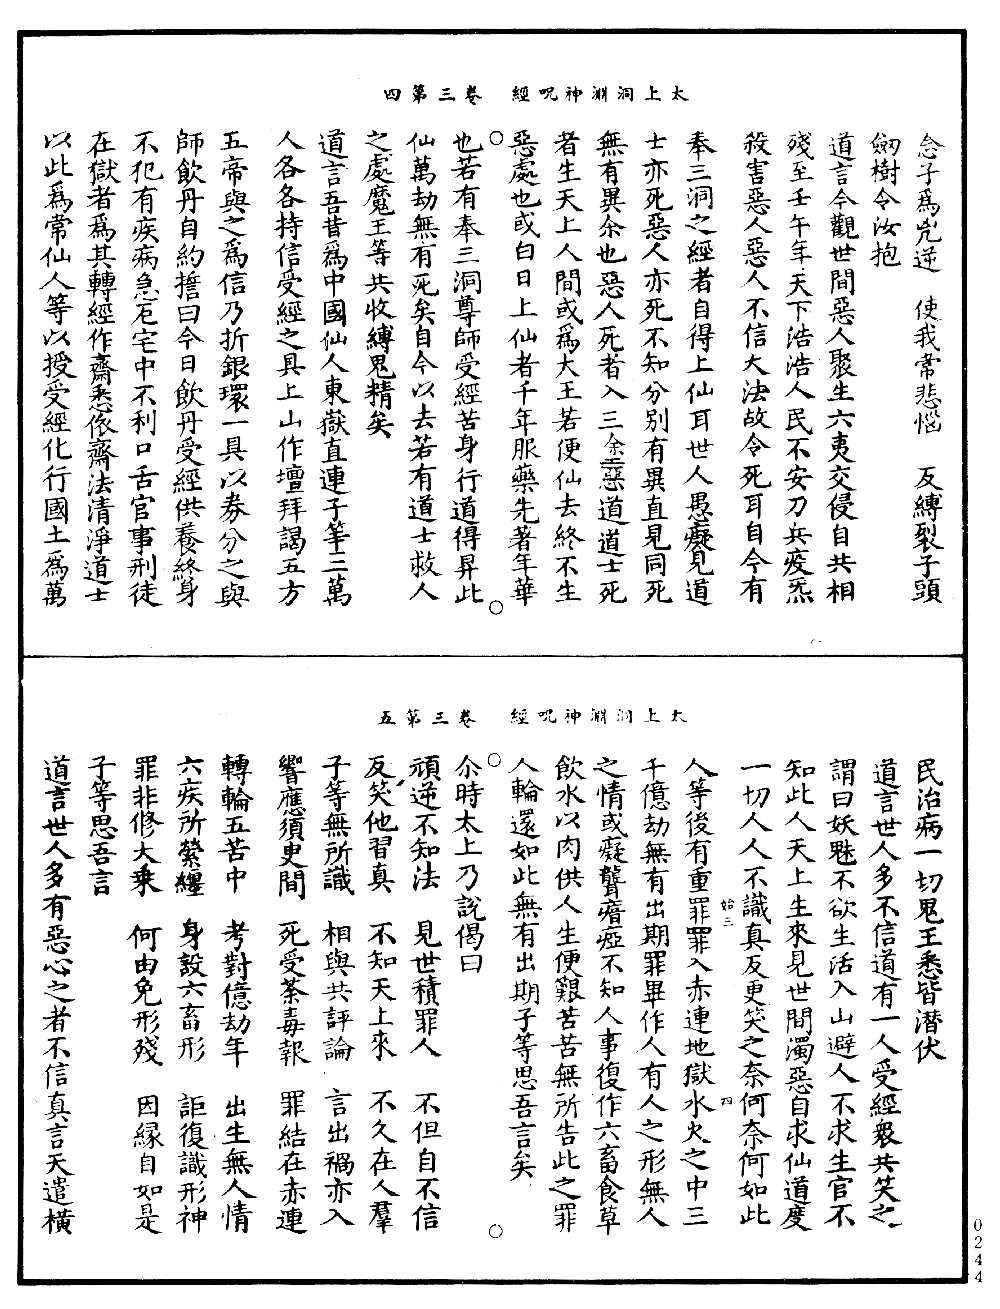 太上洞淵神呪經　卷三第四
念子爲兇逆　使我常悲惱　反縛裂子頭
劒樹令汝抱
道言今觀世間惡人聚生六夷交侵自共相
殘至壬午年天下浩浩人民不安刀兵疫炁
殺害惡人惡人不信大法故令死耳自今有
奉三洞之經者自得上仙耳世人愚癡見道
士亦死惡人亦死不知分別有異直見同死
無有異尒也惡人死者入三余三惡道道士死
者生天上人間或爲大王若便仙去終不生
惡處也或白日上仙者千年服藥先著年華
也若有奉三洞尊師受經苦身行道得昇此
仙萬劫無有死矣自今以去若有道士救人
之處魔王等共收縛鬼精矣
道言吾昔爲中國仙人東嶽直連子等三萬
人各各持信受經之具上山作壇拜謁五方
五帝與之爲信乃折銀環一具以券分之與
師飲丹自約擔曰今日飲丹受經供養終身
不犯有疾病急厄宅中不利口舌官事刑徒
在獄者爲其轉經作齋悉依齋法清淨道士
以此爲常仙人等以授受經化行國土爲萬
太上洞淵神呪經　卷三第五
民治病一切鬼王悉皆潜伏
道言世人多不信道有一人受經衆共笑之
謂曰妖魅不欲生活入山避人不求生官不
知此人天上生來見世間濁惡自求仙道度
一切人人不識真反更笑之奈何奈何如此
始三　四
人等後有重罪罪入赤連地獄水火之中三
千億劫無有出期罪畢作人有人之形無人
之情或癡聾瘖瘂不知人事復作六畜食草
飲水以肉供人生便艱苦苦無所告此之罪
人輪還如此無有出期子等思吾言矣
尒時太上乃說偈曰
頑逆不知法　見世積罪人　不但自不信
反笑他習真　不知天上來　不久在人羣
子等無所識　相與共評論　言出禍亦入
響應須臾間　死受荼毒報　罪結在赤連
轉輪五苦中　考對億劫年　出生無人情
六疾所縈纏　身設六畜形　詎復識形神
罪非修大乘　何由免形殘　因緣自如是
子等思吾言
道言世人多有惡心之者不信真言天遣橫
0244